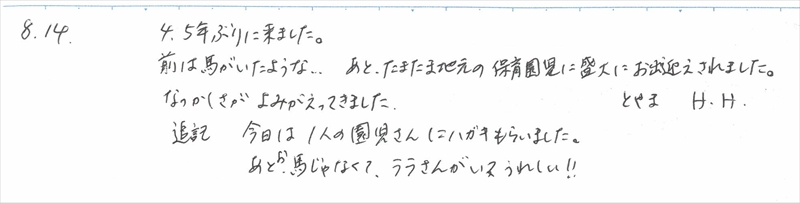 8.14. 4.5年ぶりに来ました。
前は馬がいたような… あと、たまたま地元の保育園児に盛大にお出迎えされました。
なつかしさがよみがえってきました. とやま H.H.
追記 今日は1人の園児さんにハガキもらいました。
あとお馬じゃなくて、ララさんがいてうれしい!!